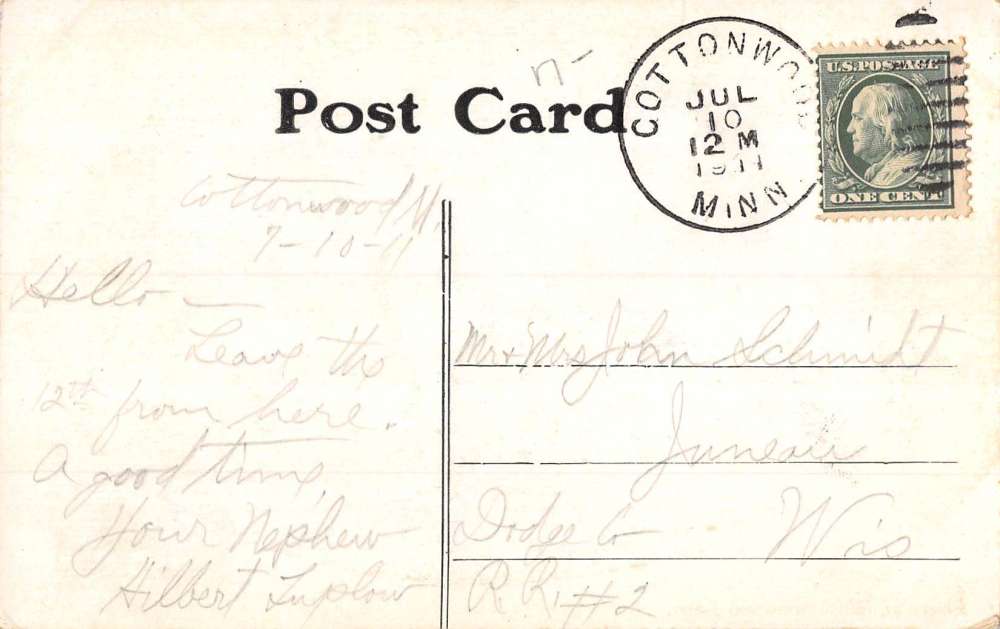 n-
Post Card
COTTONWOOD
JUL
10
12 M
1911
MINN
U.S. POSTAGE
ONE CENT
Cottonwood M.
7-10-11
Hello —
Leave the
12th from here.
A good time,
Your Nephew
Hilbert Luplow
Mr + Mrs John Schmidt
Juneau
Dodge Co Wis
R.R. #2